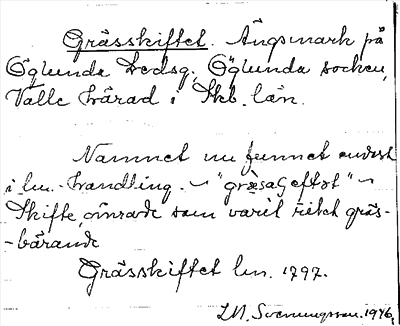 Grässkiftet. Ängsmark på
Öglunda Kedsg, Öglunda socken,
Valle härad i Skb. län.
Namnet nu funnet endast
i lm.-handling. "
Skifte, område som varit rikt gräs-
-bärande
Grässkiftet lm. 1797.
I.M. Svenungsson. 1946.